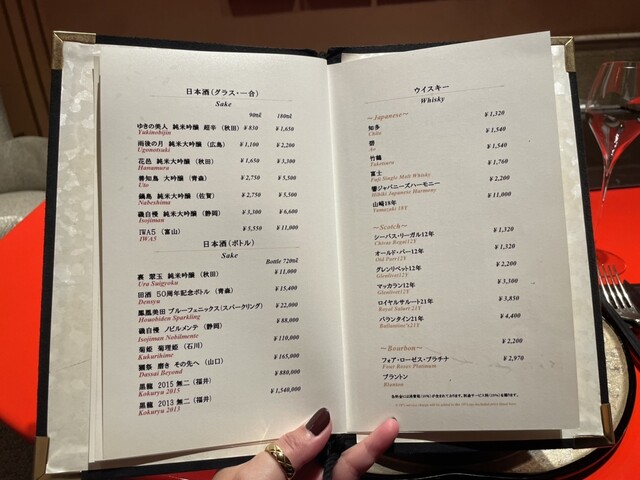 日本酒(グラス・一合)
Sake
90ml 180ml
ゆきの美人 純米吟醸 超辛 (秋田) ¥830 ¥1,650
Yukinobijin
雨後の月 純米大吟醸 (広島) ¥1,100 ¥2,200
Ugonotsuki
花邑 純米大吟醸 (秋田) ¥1,650 ¥3,300
Hanamura
善知鳥 大吟醸 (青森) ¥2,750 ¥5,500
Uto
鍋島 純米大吟醸 (佐賀) ¥2,750 ¥5,500
Nabeshima
磯自慢 純米大吟醸 (静岡) ¥3,300 ¥6,600
Isojiman
IWA5 (富山) ¥5,550 ¥11,000
IWA5
日本酒(ボトル)
Sake
Bottle 720ml
裏 翠玉 純米吟醸 (秋田) ¥11,000
Ura Suigyoku
田酒 50周年記念ボトル (青森) ¥15,400
Densyu
鳳凰美田 ブルーフェニックス(スパークリング) ¥22,000
Hououbiden Sparkling
磯自慢 ノビルメンテ (静岡) ¥88,000
Isojiman Nobilmente
菊姫 菊理姫 (石川) ¥110,000
Kukurihime
獺祭 磨き その先へ (山口) ¥165,000
Dassai Beyond
黒龍 2015 無二 (福井) ¥880,000
Kokuryu 2015
黒龍 2013 無二 (福井) ¥1,540,000
Kokuryu 2013
ウイスキー
Whisky
~Japanese~
知多 ¥1,320
Chita
碧 ¥1,540
Ao
竹鶴 ¥1,540
Taketsuru
富士 ¥1,760
Fuji Single Malt Whisky
響ジャパニーズハーモニー ¥2,200
Hibiki Japanese Harmony
山崎18年 ¥11,000
Yamazaki 18Y
~Scotch~
シーバス・リーガル12年 ¥1,320
Chivas Regal12Y
オールド・パー12年 ¥1,320
Old Parr12Y
グレンリベット12年 ¥2,200
Glenlivet12Y
マッカラン12年 ¥3,300
Glenlivet12Y
ロイヤルサルート21年 ¥3,850
Royal Salute 21Y
バランタイン21年 ¥4,400
Ballantine's21Y
~Bourbon~
フォア・ローゼス・プラチナ ¥2,200
Four Roses Platinum
ブラントン ¥2,970
Blanton